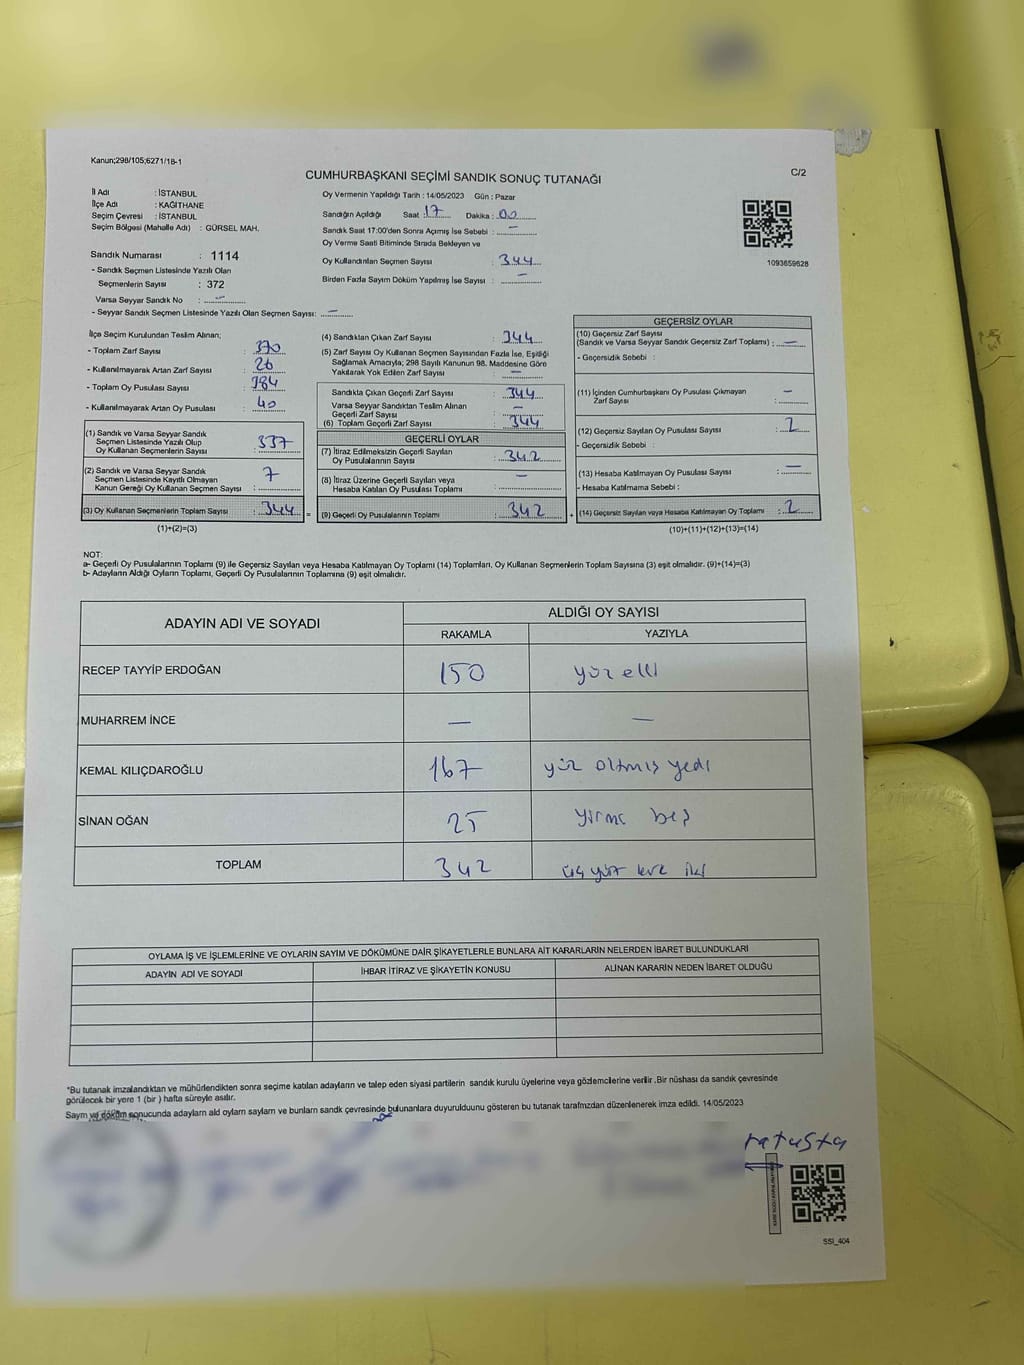 Kanun;298/105;6271/18-1
CUMHURBAŞKANI SEÇİMİ SANDIK SONUÇ TUTANAĞI
C/2
İl Adı : İSTANBUL
İlçe Adı : KAĞITHANE
Seçim Çevresi : İSTANBUL
Seçim Bölgesi (Mahalle Adı) : GÜRSEL MAH.
Sandık Numarası : 1114
- Sandık Seçmen Listesinde Yazılı Olan
Seçmenlerin Sayısı : 372
Varsa Seyyar Sandık No : —
- Seyyar Sandık Seçmen Listesinde Yazılı Olan Seçmen Sayısı: —
Oy Vermenin Yapıldığı Tarih : 14/05/2023 Gün : Pazar
Sandığın Açıldığı Saat : 17 Dakika : 00
Sandık Saat 17:00'den Sonra Açılmış İse Sebebi : —
Oy Verme Saati Bitiminde Sırada Bekleyen ve
Oy Kullandırılan Seçmen Sayısı : 344
Birden Fazla Sayım Döküm Yapılmış İse Sayısı : —
1093659628
İlçe Seçim Kurulundan Teslim Alınan;
- Toplam Zarf Sayısı : 370
- Kullanılmayarak Artan Zarf Sayısı : 26
- Toplam Oy Pusulası Sayısı : 384
- Kullanılmayarak Artan Oy Pusulası : 40
(1) Sandık ve Varsa Seyyar Sandık
Seçmen Listesinde Yazılı Olup
Oy Kullanan Seçmenlerin Sayısı : 337
(2) Sandık ve Varsa Seyyar Sandık
Seçmen Listesinde Kayıtlı Olmayan
Kanun Gereği Oy Kullanan Seçmen Sayısı : 7
(3) Oy Kullanan Seçmenlerin Toplam Sayısı : 344
(1)+(2)=(3)
(4) Sandıktan Çıkan Zarf Sayısı : 344
(5) Zarf Sayısı Oy Kullanan Seçmen Sayısından Fazla İse, Eşitliği
Sağlamak Amacıyla; 298 Sayılı Kanunun 98. Maddesine Göre
Yakılarak Yok Edilen Zarf Sayısı : —
Sandıkta Çıkan Geçerli Zarf Sayısı : 344
Varsa Seyyar Sandıktan Teslim Alınan
Geçerli Zarf Sayısı : —
(6) Toplam Geçerli Zarf Sayısı : 344
GEÇERLİ OYLAR
(7) İtiraz Edilmeksizin Geçerli Sayılan
Oy Pusulalarının Sayısı : 342
(8) İtiraz Üzerine Geçerli Sayılan veya
Hesaba Katılan Oy Pusulası Toplamı : —
= (9) Geçerli Oy Pusulalarının Toplamı : 342 +
GEÇERSİZ OYLAR
(10) Geçersiz Zarf Sayısı
(Sandık ve Varsa Seyyar Sandık Geçersiz Zarf Toplamı) : —
- Geçersizlik Sebebi :
(11) İçinden Cumhurbaşkanı Oy Pusulası Çıkmayan
Zarf Sayısı : —
(12) Geçersiz Sayılan Oy Pusulası Sayısı : 2
- Geçersizlik Sebebi :
(13) Hesaba Katılmayan Oy Pusulası Sayısı : —
- Hesaba Katılmama Sebebi :
(14) Geçersiz Sayılan veya Hesaba Katılmayan Oy Toplamı : 2
(10)+(11)+(12)+(13)=(14)
NOT:
a- Geçerli Oy Pusulalarının Toplamı (9) ile Geçersiz Sayılan veya Hesaba Katılmayan Oy Toplamı (14) Toplamları, Oy Kullanan Seçmenlerin Toplam Sayısına (3) eşit olmalıdır. (9)+(14)=(3)
b- Adayların Aldığı Oyların Toplamı, Geçerli Oy Pusulalarının Toplamına (9) eşit olmalıdır.
ADAYIN ADI VE SOYADI ALDIĞI OY SAYISI
RAKAMLA YAZIYLA
RECEP TAYYİP ERDOĞAN 150 yüz elli
MUHARREM İNCE — —
KEMAL KILIÇDAROĞLU 167 yüz altmış yedi
SİNAN OĞAN 25 yirmi beş
TOPLAM 342 üç yüz kırk iki
OYLAMA İŞ VE İŞLEMLERİNE VE OYLARIN SAYIM VE DÖKÜMÜNE DAİR ŞİKAYETLERLE BUNLARA AİT KARARLARIN NELERDEN İBARET BULUNDUKLARI
ADAYIN ADI VE SOYADI İHBAR İTİRAZ VE ŞİKAYETİN KONUSU ALINAN KARARIN NEDEN İBARET OLDUĞU
*Bu tutanak imzalandıktan ve mühürlendikten sonra seçime katılan adayların ve talep eden siyasi partilerin sandık kurulu üyelerine veya gözlemcilerine verilir .Bir nüshası da sandık çevresinde
görülecek bir yere 1 (bir ) hafta süreyle asılır.
Sayım ve döküm sonucunda adayların ald oyların sayları ve bunların sandk çevresinde bulunanlara duyurulduunu gösteren bu tutanak tarafmzdan düzenlenerek imza edildi. 14/05/2023
ratusta
SSI_404